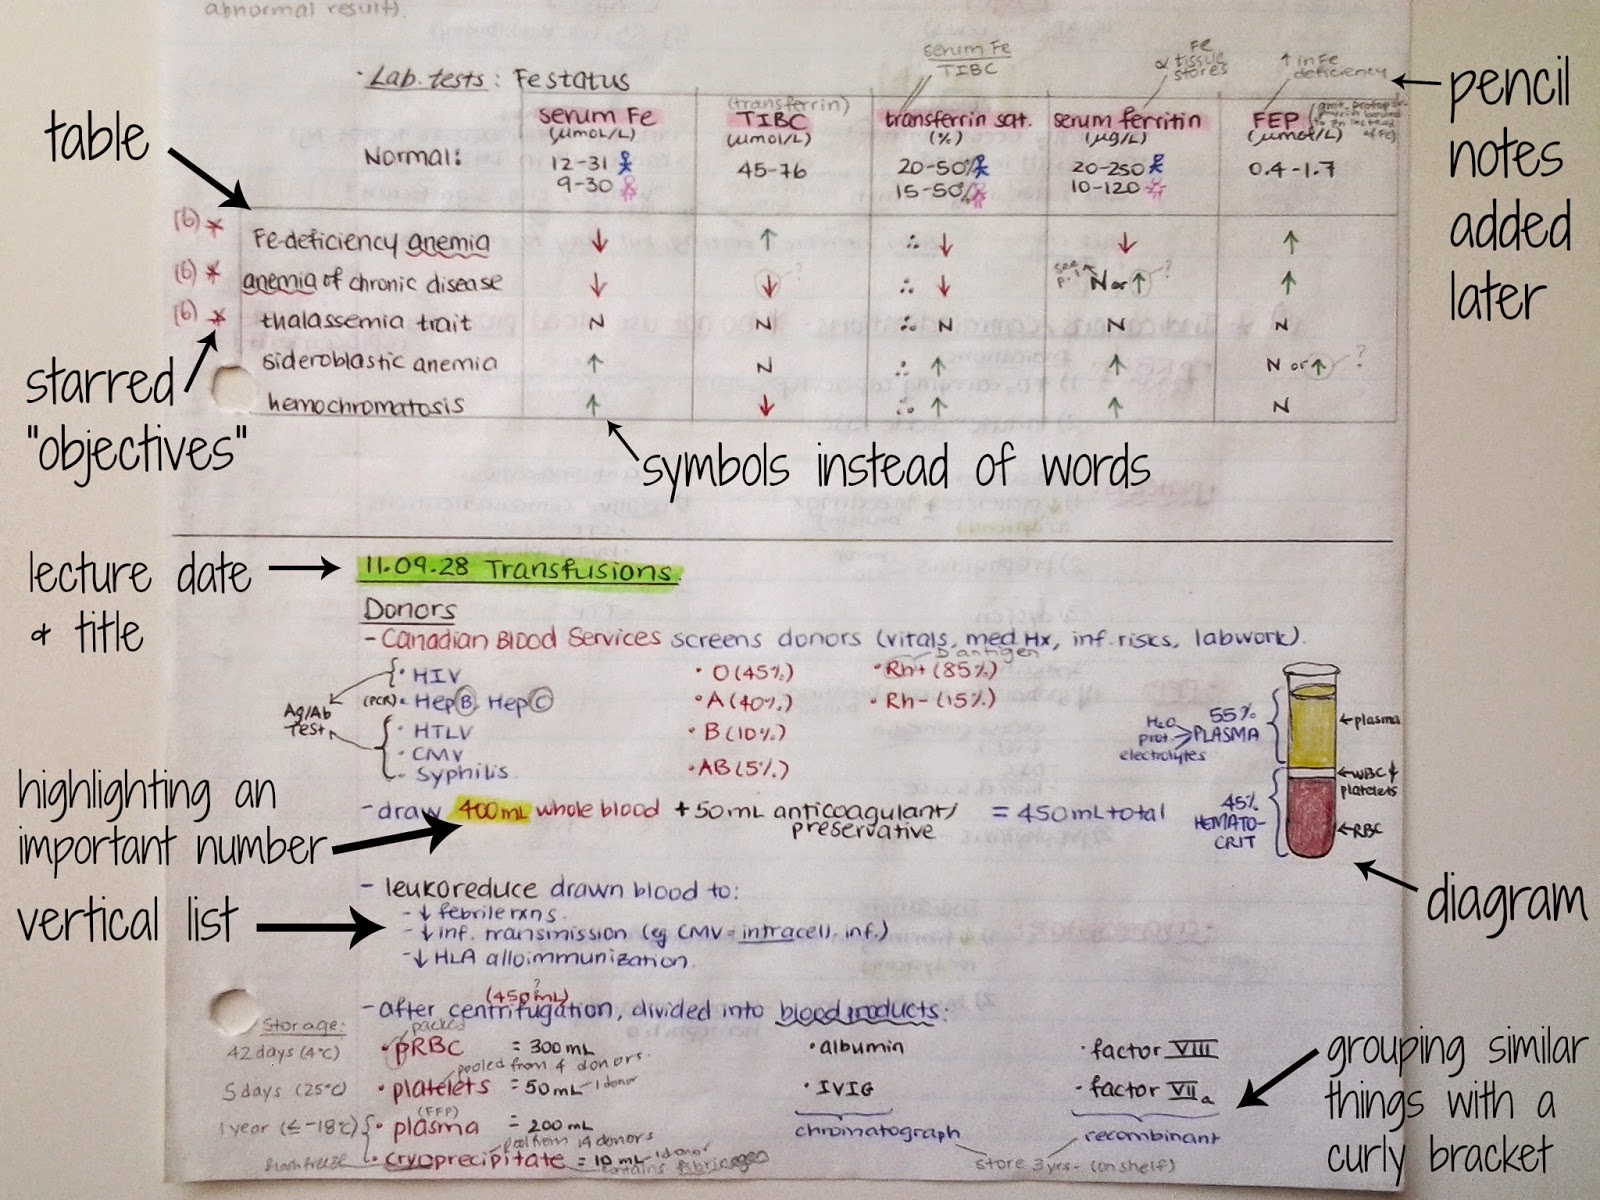 abnormal result).
serum Fe
TIBC
Fe
α tissue
stores
↑ in Fe
deficiency
pencil
notes
added
later
· Lab. tests: Fe status
table
serum Fe
(µmol/L)
(transferrin)
TIBC
(µmol/L)
transferrin sat.
(%)
serum ferritin
(µg/L)
FEP
(µmol/L)
Normal:
12-31
9-30
45-76
20-50%
15-50%
20-250
10-120
0.4-1.7
(6) * Fe-deficiency anemia ↓ ↑ ∴ ↓ ↓ ↑
(6) * anemia of chronic disease ↓ ↓ ? ∴ ↓ see p.1 N or ↑ ? ↑
(6) * thalassemia trait N N ∴ N N N
sideroblastic anemia ↑ N ∴ ↑ ↑ N or ↑ ?
hemochromatosis ↑ ↓ ∴ ↑ ↑ N
starred
"objectives"
symbols instead of words
lecture date
& title
11.09.28 Transfusions.
Donors
- Canadian Blood Services screens donors (vitals, med. Hx, inf. risks, labwork).
D antigen
· HIV
(PCR) · Hep B, Hep C
· HTLV
· CMV
· Syphilis
Ag/Ab
Test
· O (45%)
· A (40%)
· B (10%)
· AB (5%)
· Rh+ (85%)
· Rh- (15%)
H₂O
prot.
electrolytes
55%
PLASMA
plasma
WBC &
platelets
45%
HEMATO-
CRIT
RBC
diagram
highlighting an
important number
- draw 400mL whole blood + 50mL anticoagulant/
preservative
= 450mL total
vertical list
- leukoreduce drawn blood to:
- ↓ febrile rxns.
- ↓ inf. transmission (eg CMV = intracell. inf.)
- ↓ HLA alloimmunization.
?
(450mL)
- after centrifugation, divided into blood products:
Storage:
packed
42 days (4°C) · pRBC = 300mL
pooled from 4 donors.
5 days (25°C) · platelets = 50mL - 1 donor
(FFP)
1 year (≤ -18°C) · plasma = 200mL
pool from 14 donors
· cryoprecipitate = 10mL - 1 donor
contains fibrinogen
· albumin
· IVIG
chromatograph
· factor VIII
· factor VIIa
recombinant
store 3yrs - (on shelf)
grouping similar
things with a
curly bracket